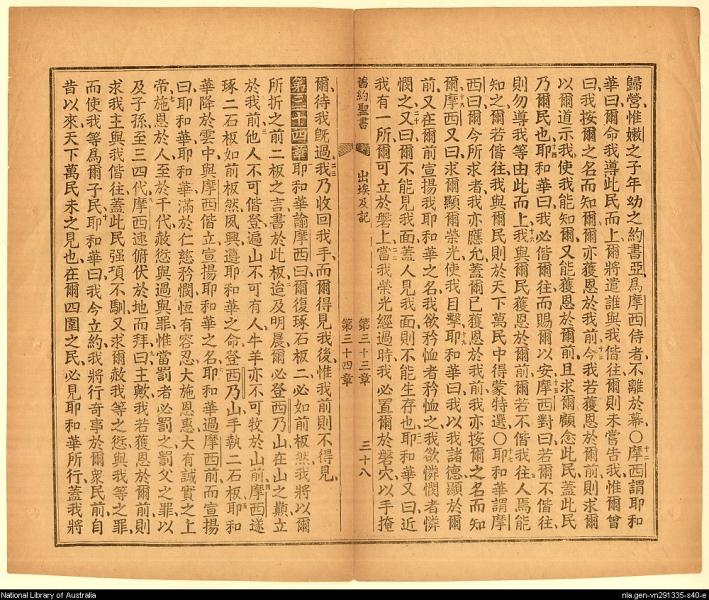 歸營惟嫩之子年幼之約書亞爲摩西侍者不離於幕〇摩西謂耶和
華曰爾命我導此民而上爾將遣誰與我偕往爾則未嘗告我惟爾曾
曰我按爾之名而知爾爾亦獲恩於我前今我若獲恩於爾前則求爾
以爾道示我使我能知爾又能獲恩於爾前且求爾顧念此民蓋此民
乃爾民也耶和華曰我必偕爾往而賜爾以安摩西對曰若爾不偕往
則勿導我等由此而上我與爾民獲恩於爾前爾若不偕我往人焉能
知之爾若偕往我與爾民則於天下萬民中得蒙特選〇耶和華謂摩
西曰爾今所求者我亦應允蓋爾已獲恩於我前我亦按爾之名而知
爾摩西又曰求爾顯爾榮光使我目擊耶和華曰我以我諸德顯於爾
前又在爾前宣揚我耶和華之名我欲矜恤者矜恤之我欲憐憫者憐
憫之又曰爾不能見我面蓋人見我面則不能生存也耶和華又曰近
我有一所爾可立於磐上當我榮光經過時我必置爾於磐穴以手掩
舊約聖書 出埃及記 第三十三章 第三十四章 三十八
爾待我旣過我乃收回我手而爾得見我後惟我前則不得見
第三十四章耶和華諭摩西曰爾復琢石板二必如前板然我將以爾
所折之前二板之言書於此板迨及明晨爾必登西乃山在山之巔立
於我前他人不可偕登遍山不可有人牛羊亦不可牧於山前摩西遂
琢二石板如前板然夙興遵耶和華之命登西乃山手執二石板耶和
華降於雲中與摩西偕立宣揚耶和華之名耶和華過摩西前而宣揚
曰耶和華耶和華滿於仁慈矜憫恆有容忍大施恩惠大有誠實之上
帝施恩於人至於千代赦愆與過與罪惟當罰者必罰之罰父之罪以
及子孫至三四代摩西速俯伏於地而拜曰主歟我若獲恩於爾前則
求我主與我偕往蓋此民强項不馴又求爾赦我等之愆與我等之罪
而使我等爲爾子民耶和華曰我今立約我將行奇事於爾衆民前自
昔以來天下萬民未之見也在爾四圍之民必見耶和華所行蓋我將
National Library of Australia
nla.gen-vn291335-s40-e